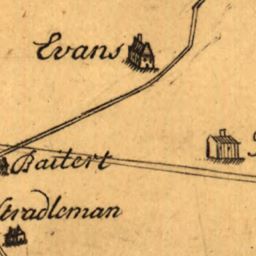 Evans
Baitert
Stradleman